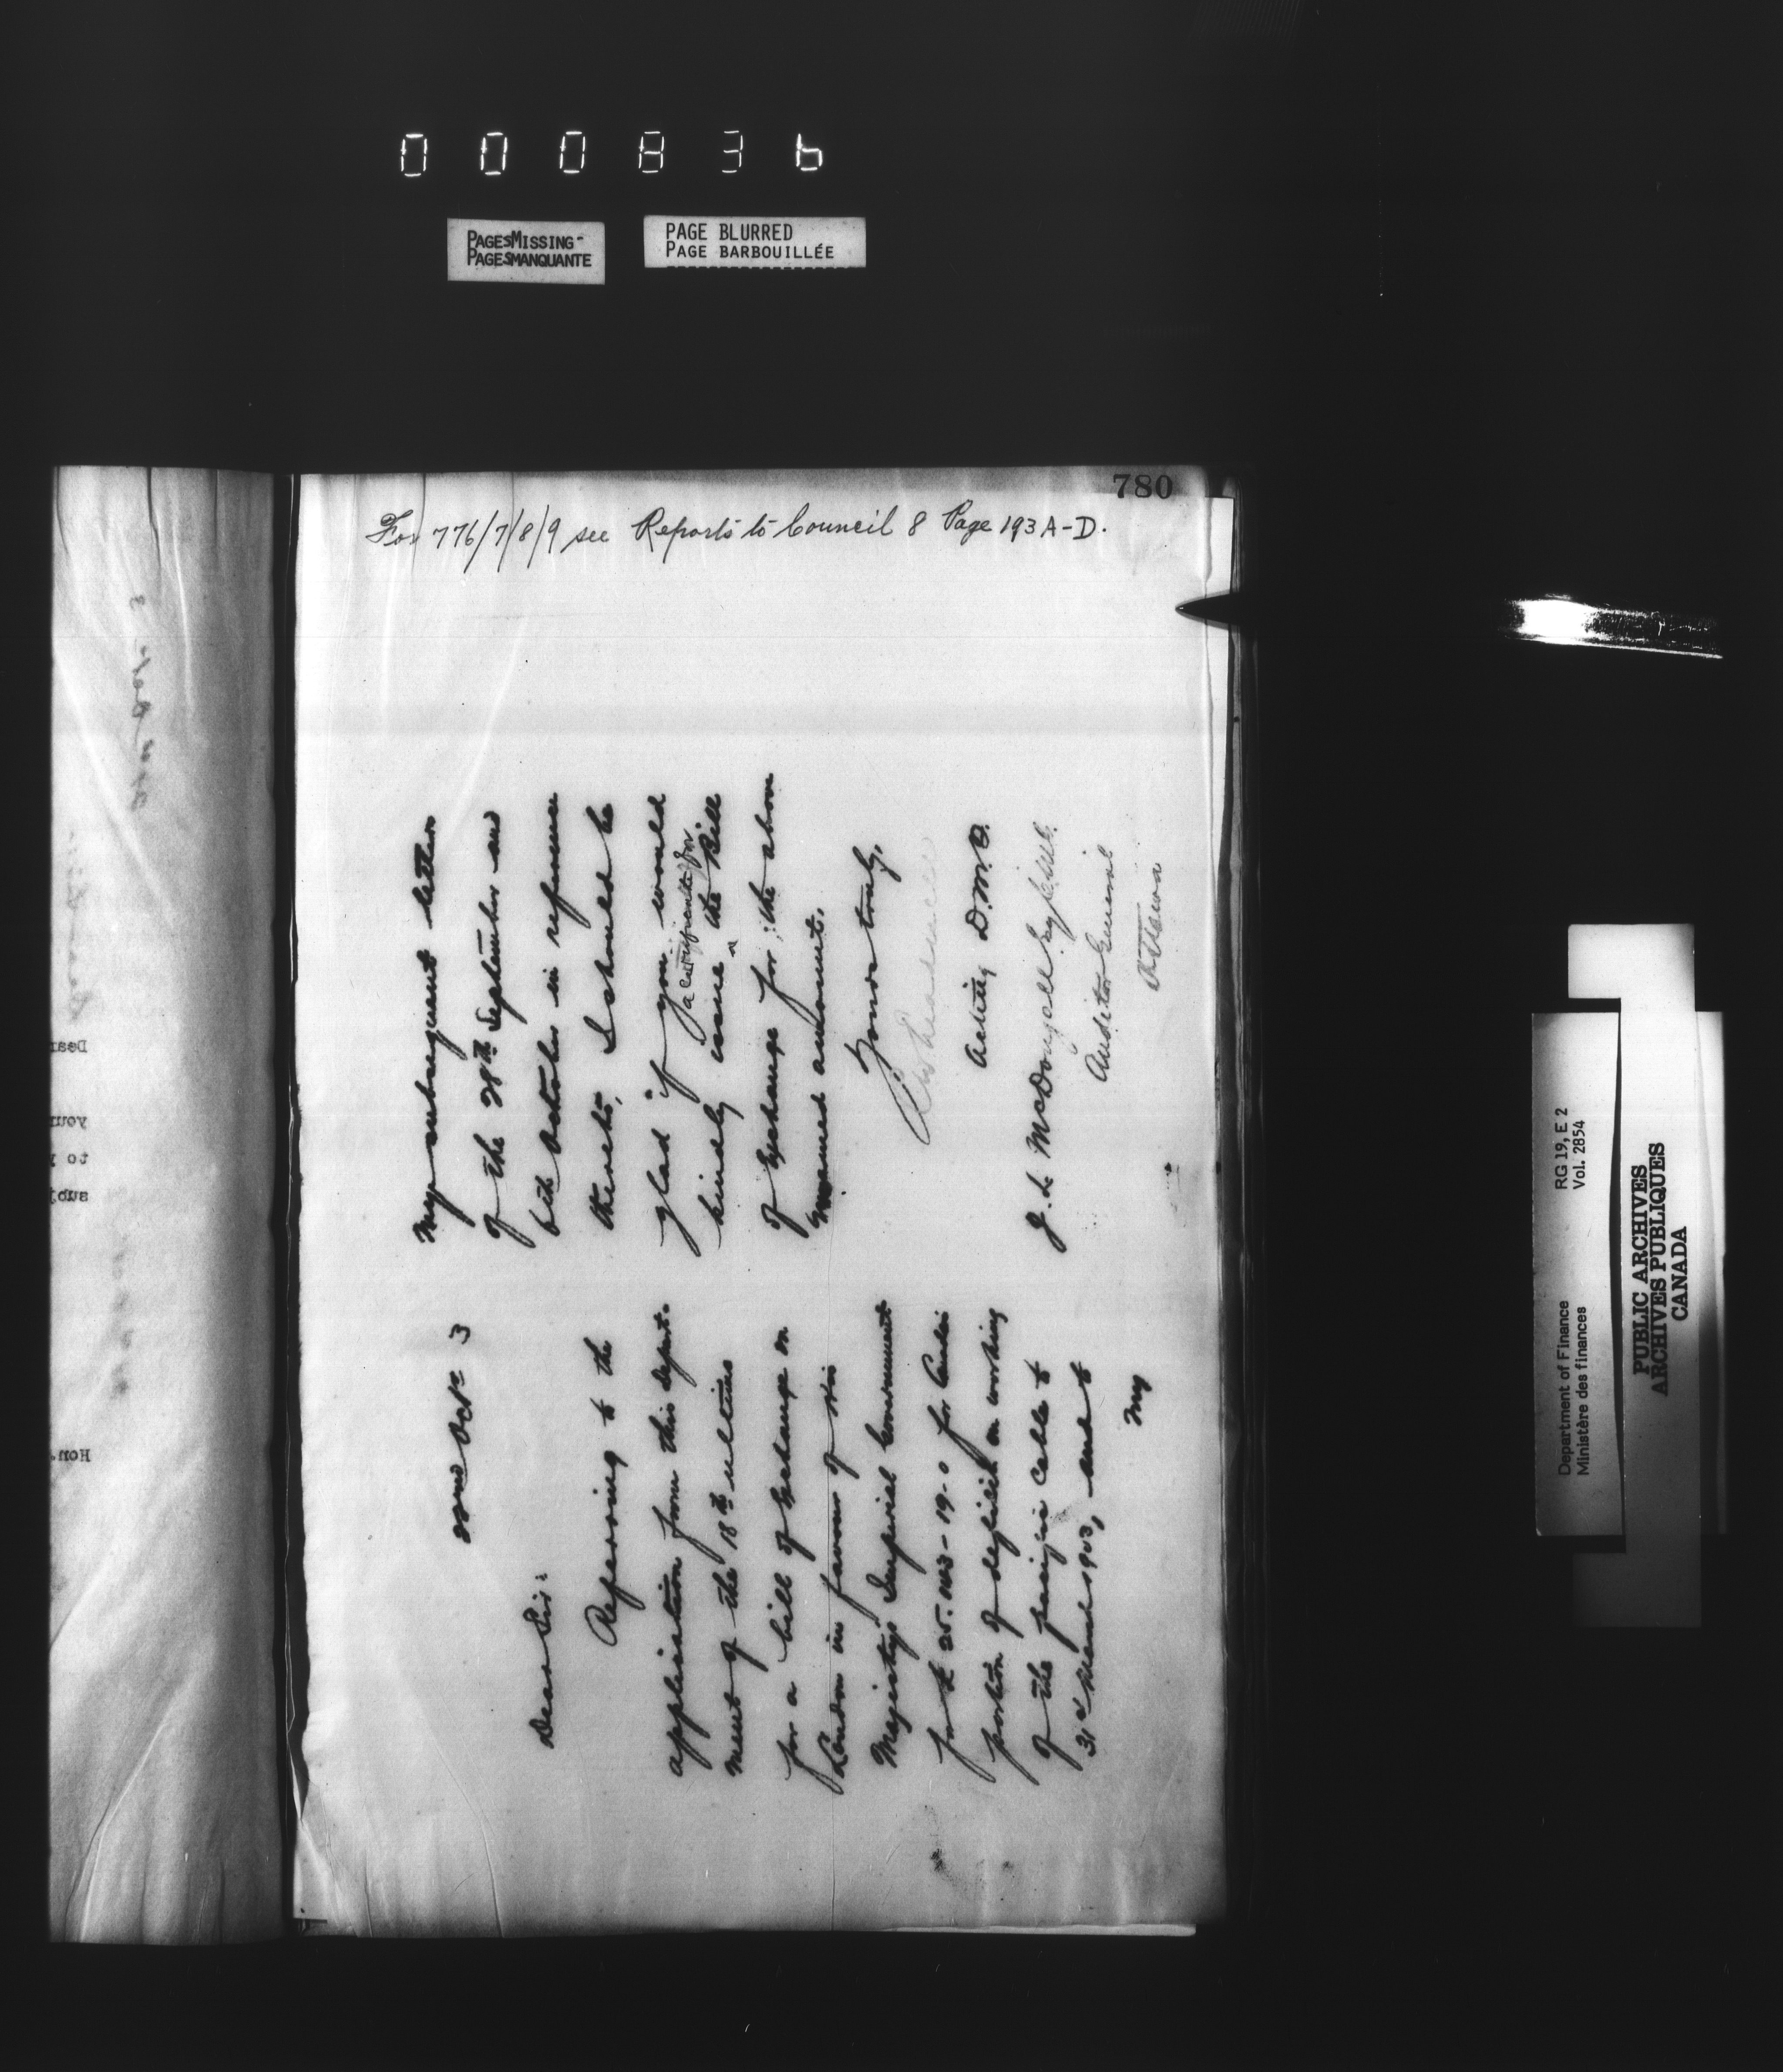 000836
PAGES MISSING-
PAGES MANQUANTE
PAGE BLURRED
PAGE BARBOUILLÉE
780
For 776/7/8/9 see Reports to Council 8 Page 193 A-D.
Octr 3
Dear Sir:
Referring to the
application from this Depart-
ment of the 18th ultimo
for a bill of Exchange on
London in favour of His
Majesty's Imperial Government
for £ 25. - 19-0 for
portion of deficit on working
of the pacific Cable to
31st March 1903, and to
my
My subsequent letters
of the 28th September and
6th October in reference
thereto, I should be
glad if you would
a certificate for
kindly issue ^ the Bill
of Exchange for the above
named amount.
Yours truly,
Acting D.M.
J. L. McDougall Esq C.M.G.
Auditor General
Ottawa
Dear
your
to
subj
Hon.
Department of Finance
Ministère des finances
RG 19, E 2
Vol. 2854
PUBLIC ARCHIVES
ARCHIVES PUBLIQUES
CANADA